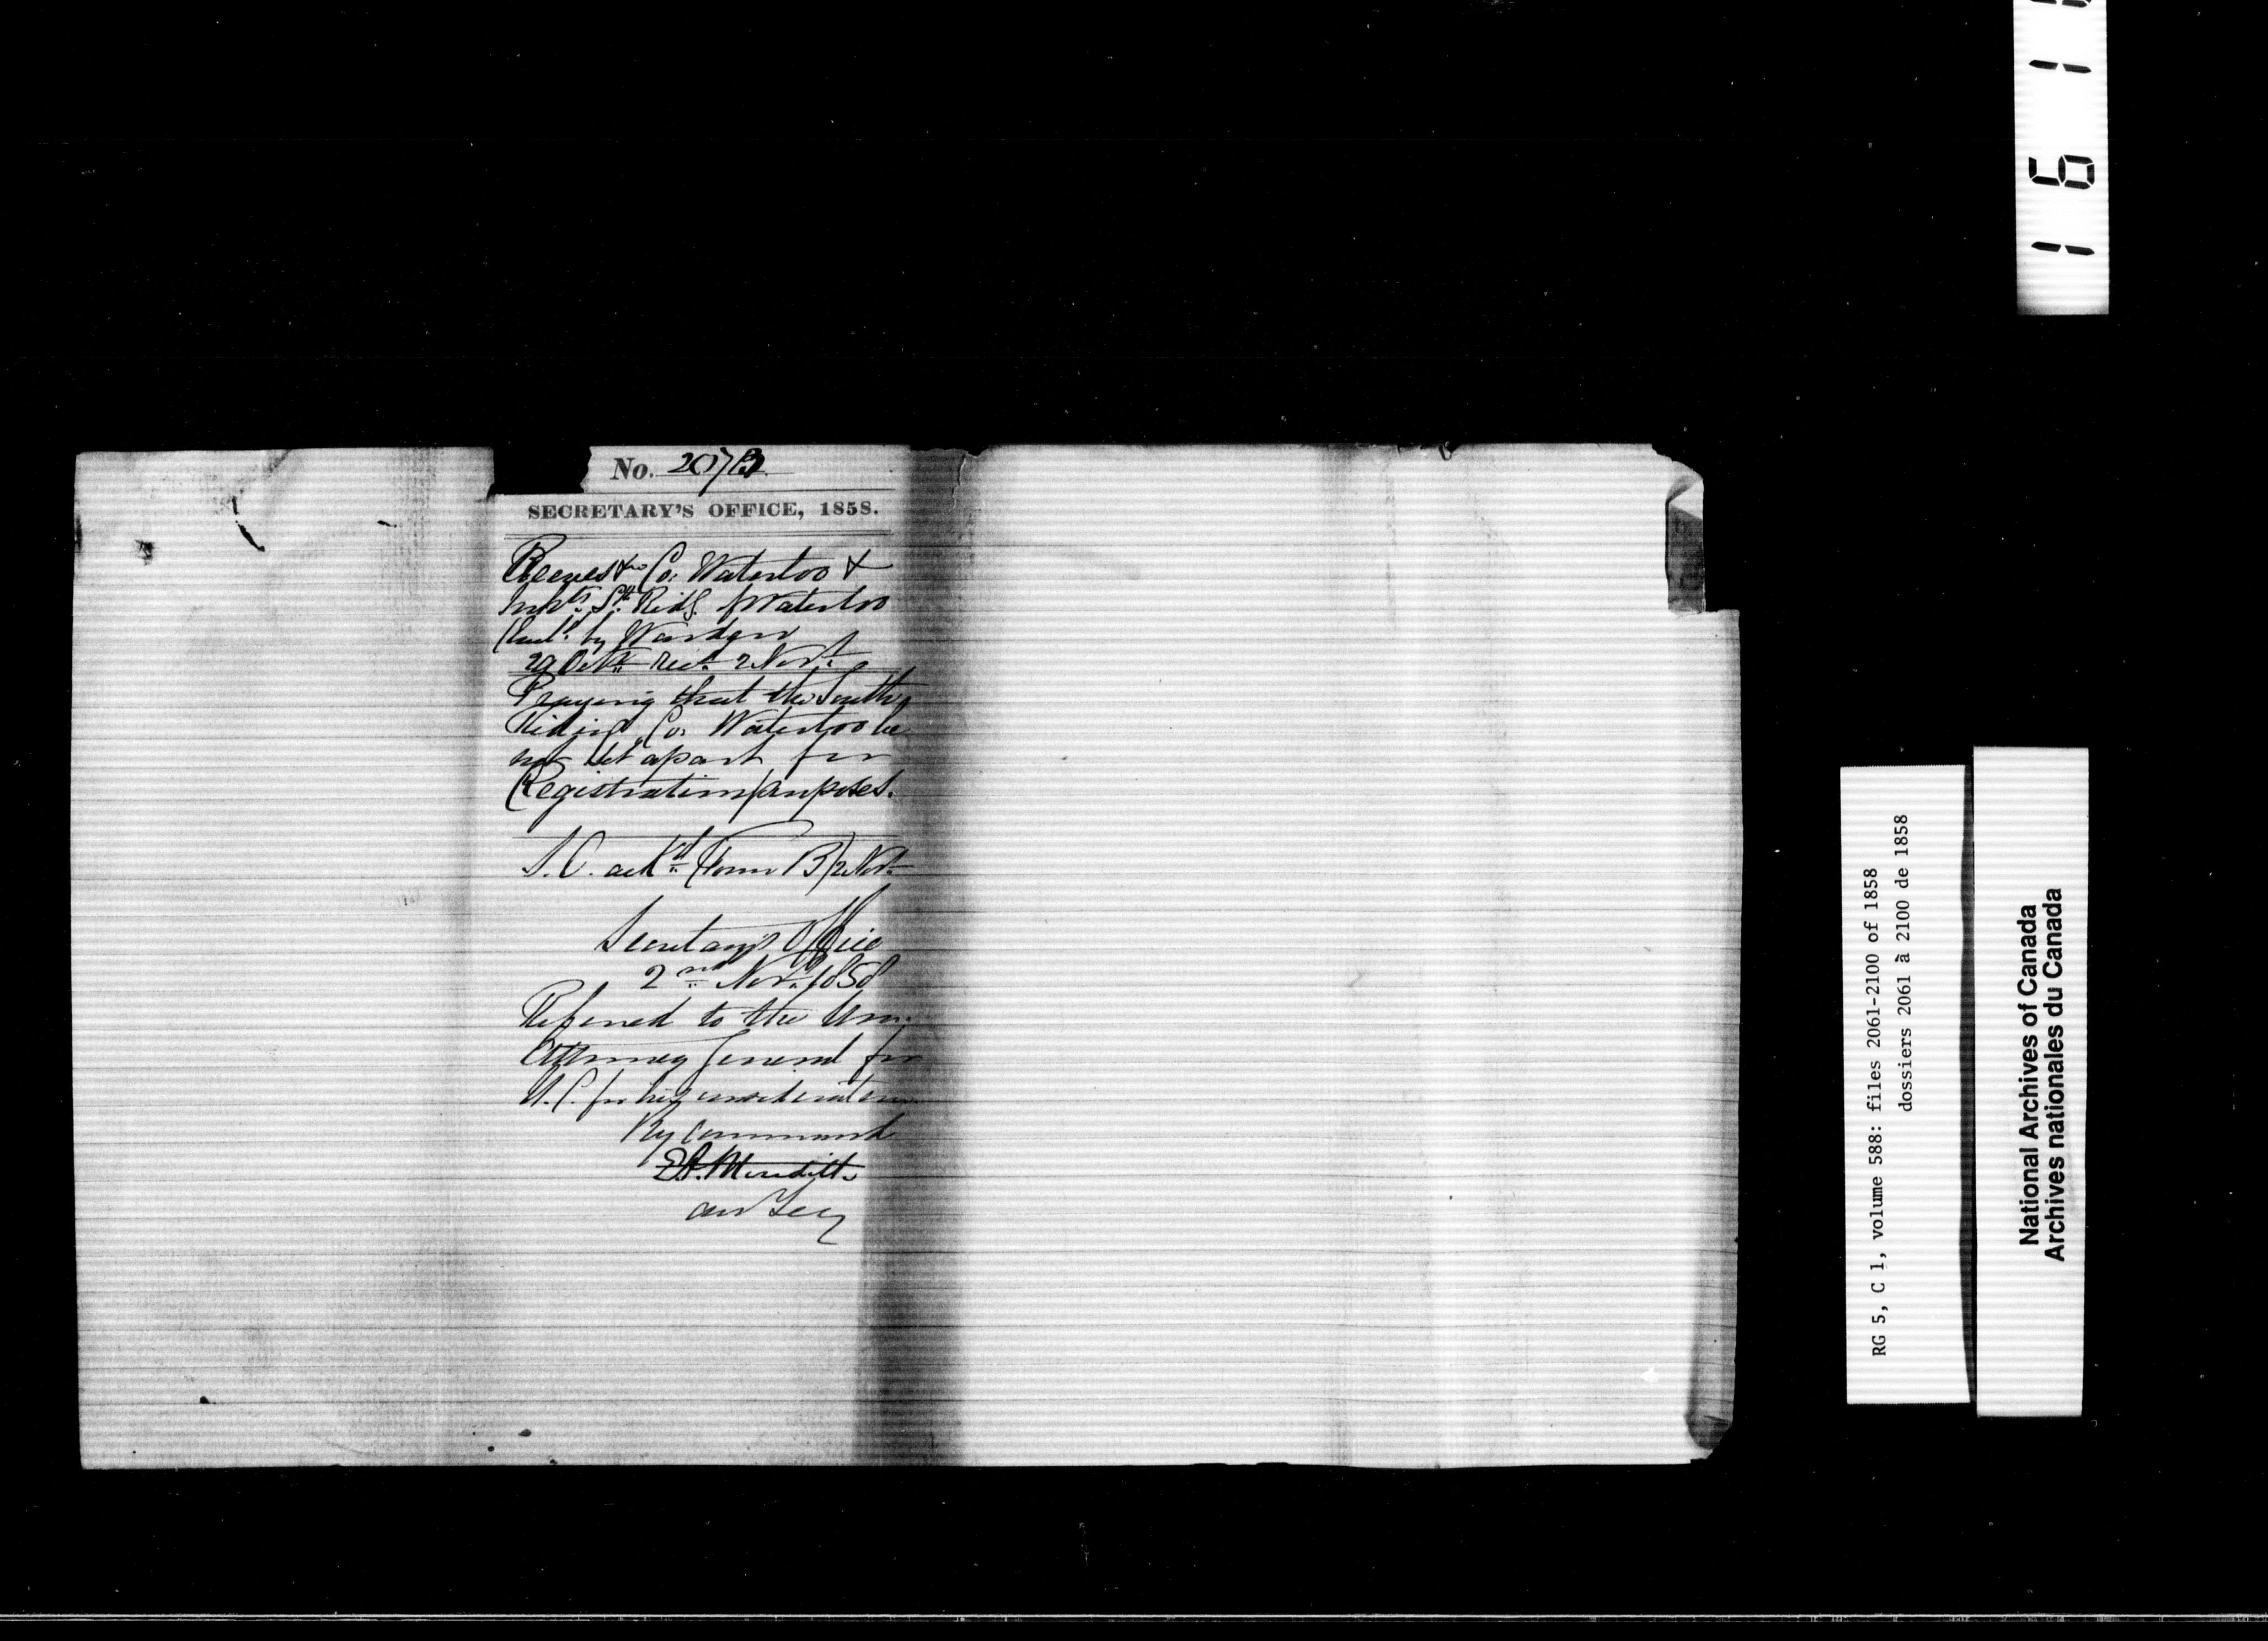 No. 2073
SECRETARY'S OFFICE, 1858.
Reeves &c Co: Waterloo &
Inhts. Sth. Ridg. Waterloo
by Warden
29 Oct. Recd. 2 Nov.
Praying that the South
Riding, Co. Waterloo be
not set apart for
Registration purposes.
S.O. ackd. (Form B) 2 Nov.
Secretary's Office
2nd Nov. 1858
Referred to the Hon.
Attorney General for
U.C. for his consideration
By Command
E.A. Meredith
Secy
RG 5, C 1, volume 588: files 2061-2100 of 1858
dossiers 2061 à 2100 de 1858
National Archives of Canada
Archives nationales du Canada
1 6 1